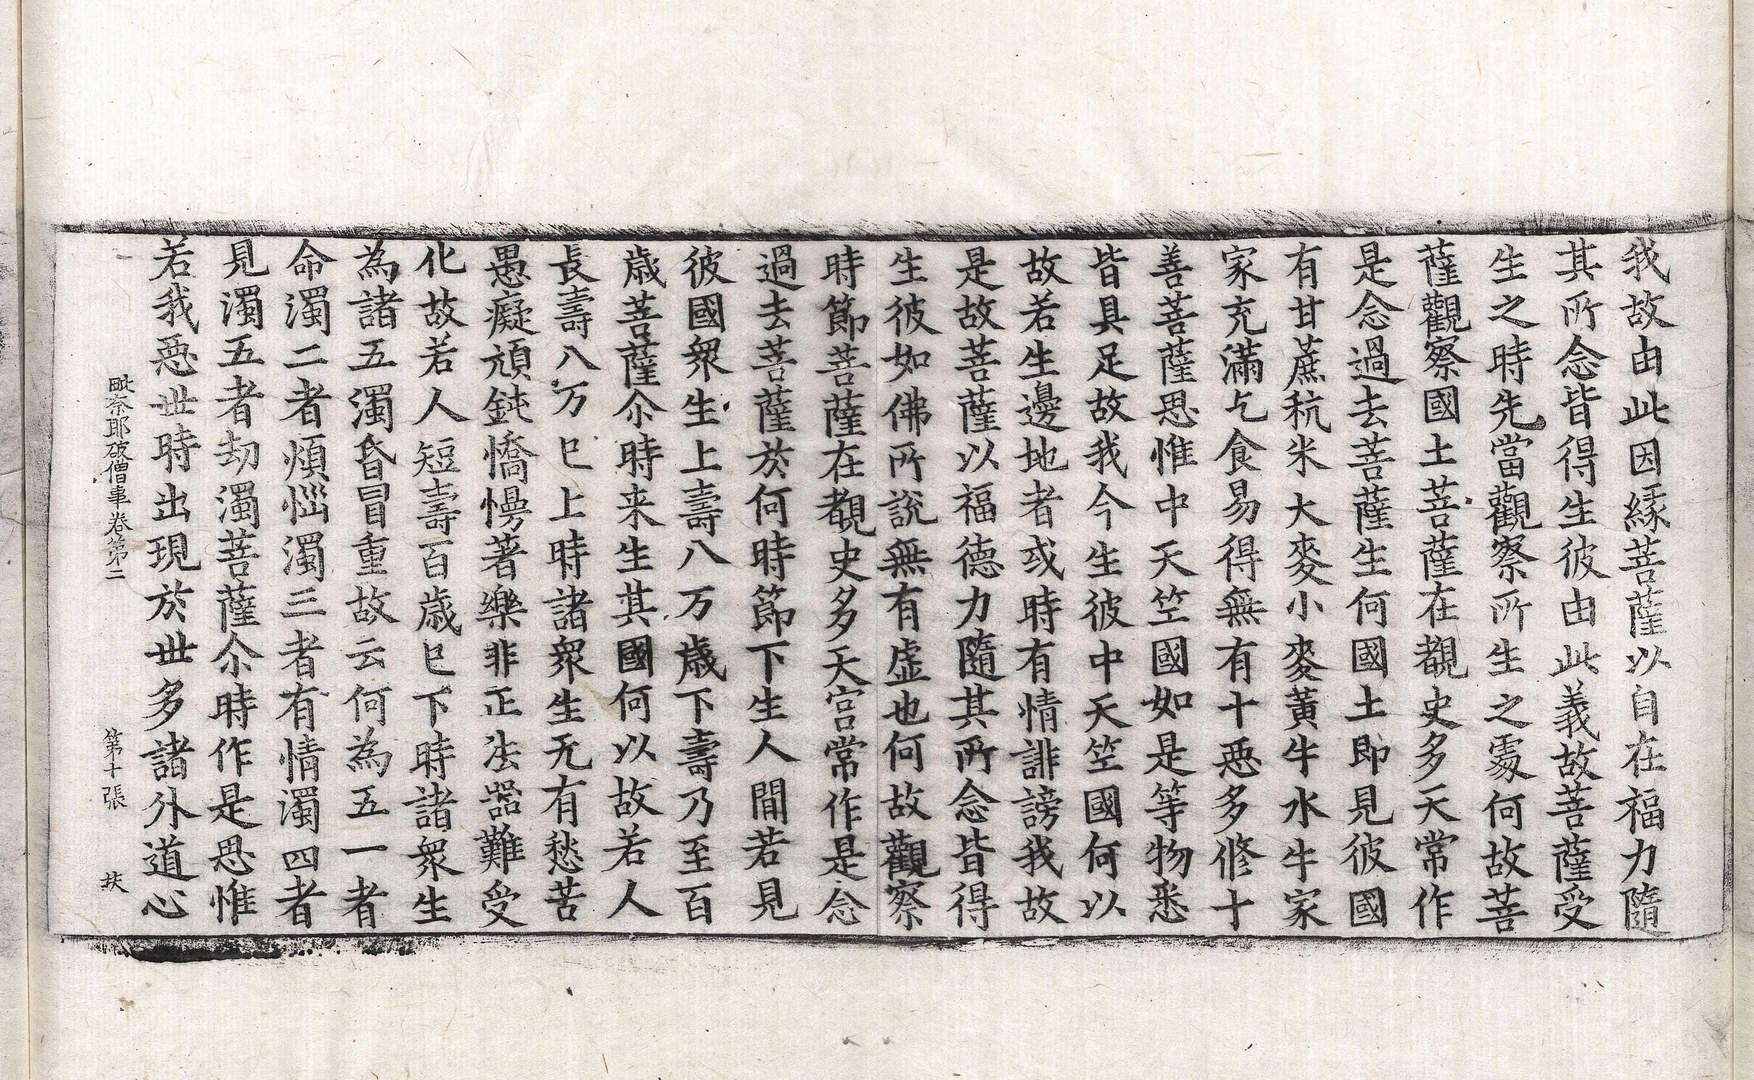 我故由此因緣菩薩以自在福力隨
其所念皆得生彼由此義故菩薩受
生之時先當觀察所生之處何故菩
薩觀察國土菩薩在覩史多天常作
是念過去菩薩生何國土即見彼國
有甘蔗秔米大麥小麥黃牛水牛家
家充滿乞食易得無有十惡多修十
善菩薩思惟中天竺國如是等物悉
皆具足故我今生彼中天竺國何以
故若生邊地者或時有情誹謗我故
是故菩薩以福德力隨其所念皆得
生彼如佛所說無有虛也何故觀察
時節菩薩在覩史多天宮常作是念
過去菩薩於何時節下生人間若見
彼國衆生上壽八万歲下壽乃至百
歲菩薩尒時来生其國何以故若人
長壽八万已上時諸衆生无有愁苦
愚癡頑鈍憍慢著樂非正法器難受
化故若人短壽百歲已下時諸衆生
為諸五濁昏冒重故云何為五一者
命濁二者煩惱濁三者有情濁四者
見濁五者劫濁菩薩尒時作是思惟
若我惡世時出現於世多諸外道心
毗奈耶破僧事卷第二 第十張 扶